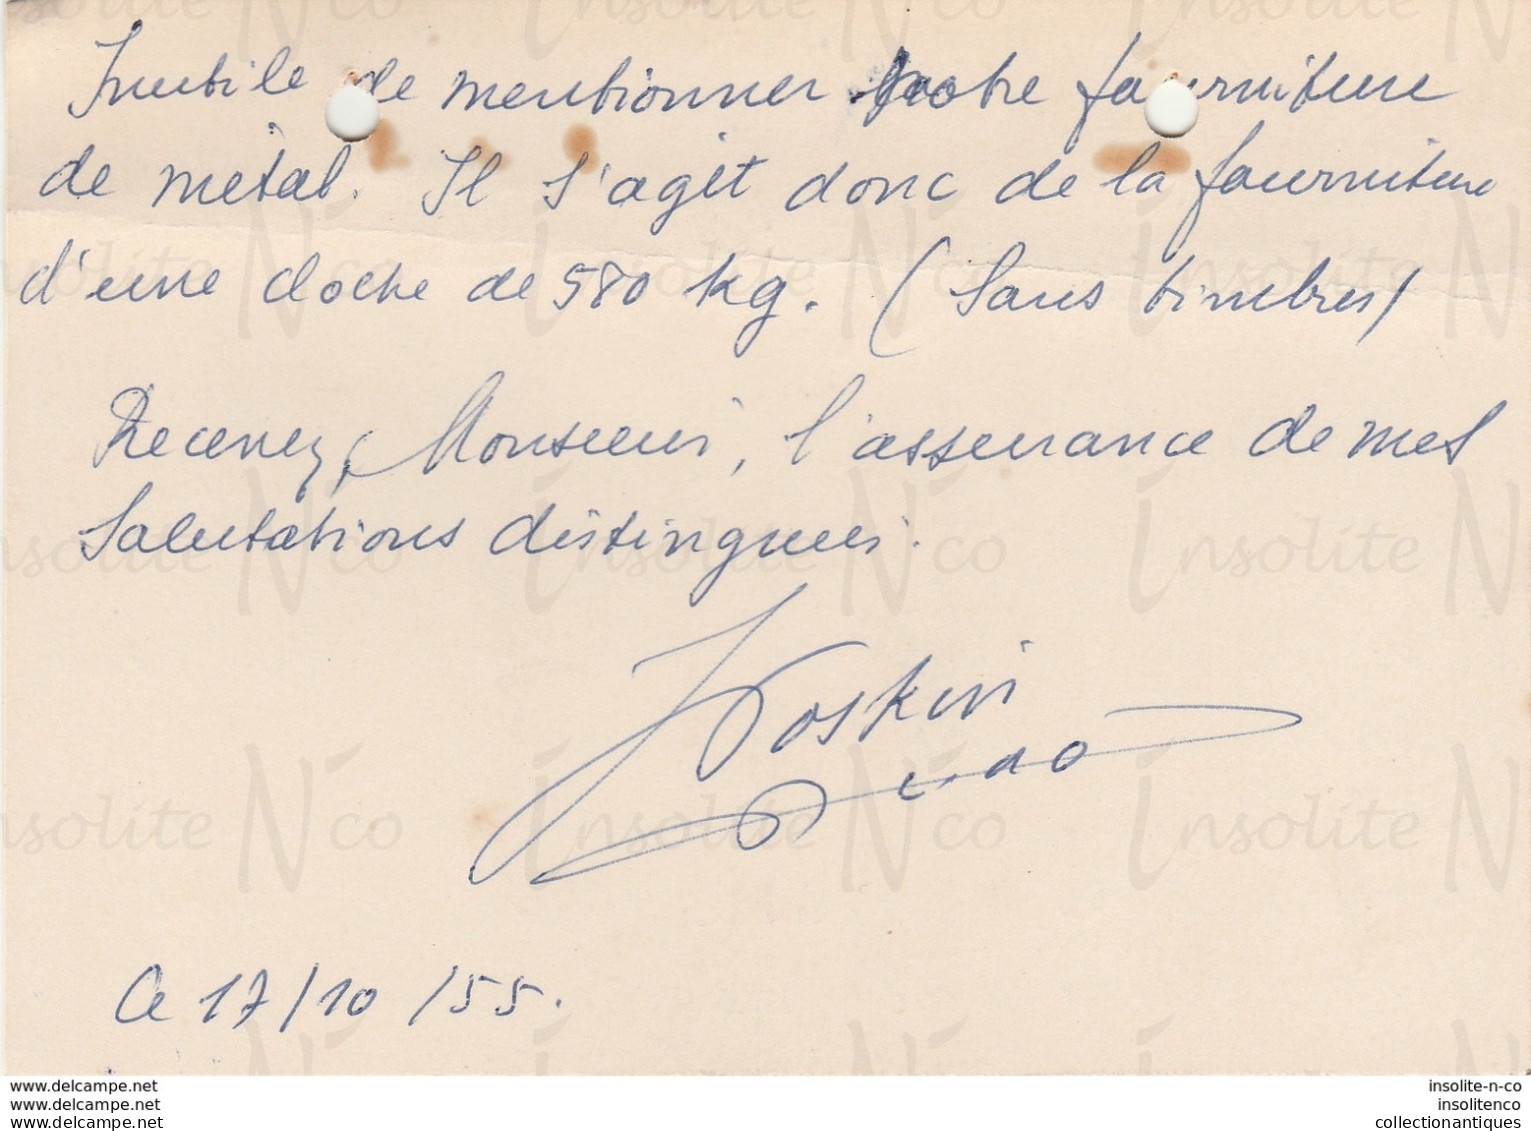 Inutile de mentionner notre fourniture
de métal. Il s'agit donc de la fourniture
d'une cloche de 580 kg. (Sans timbres)
Recevez, Monsieur, l'assurance de mes
salutations distinguées.
Ce 17/10/55.
www.delcampe.net
www.delcampe.net
www.delcampe.net
insolite-n-co
insolitenco
collectionantiques